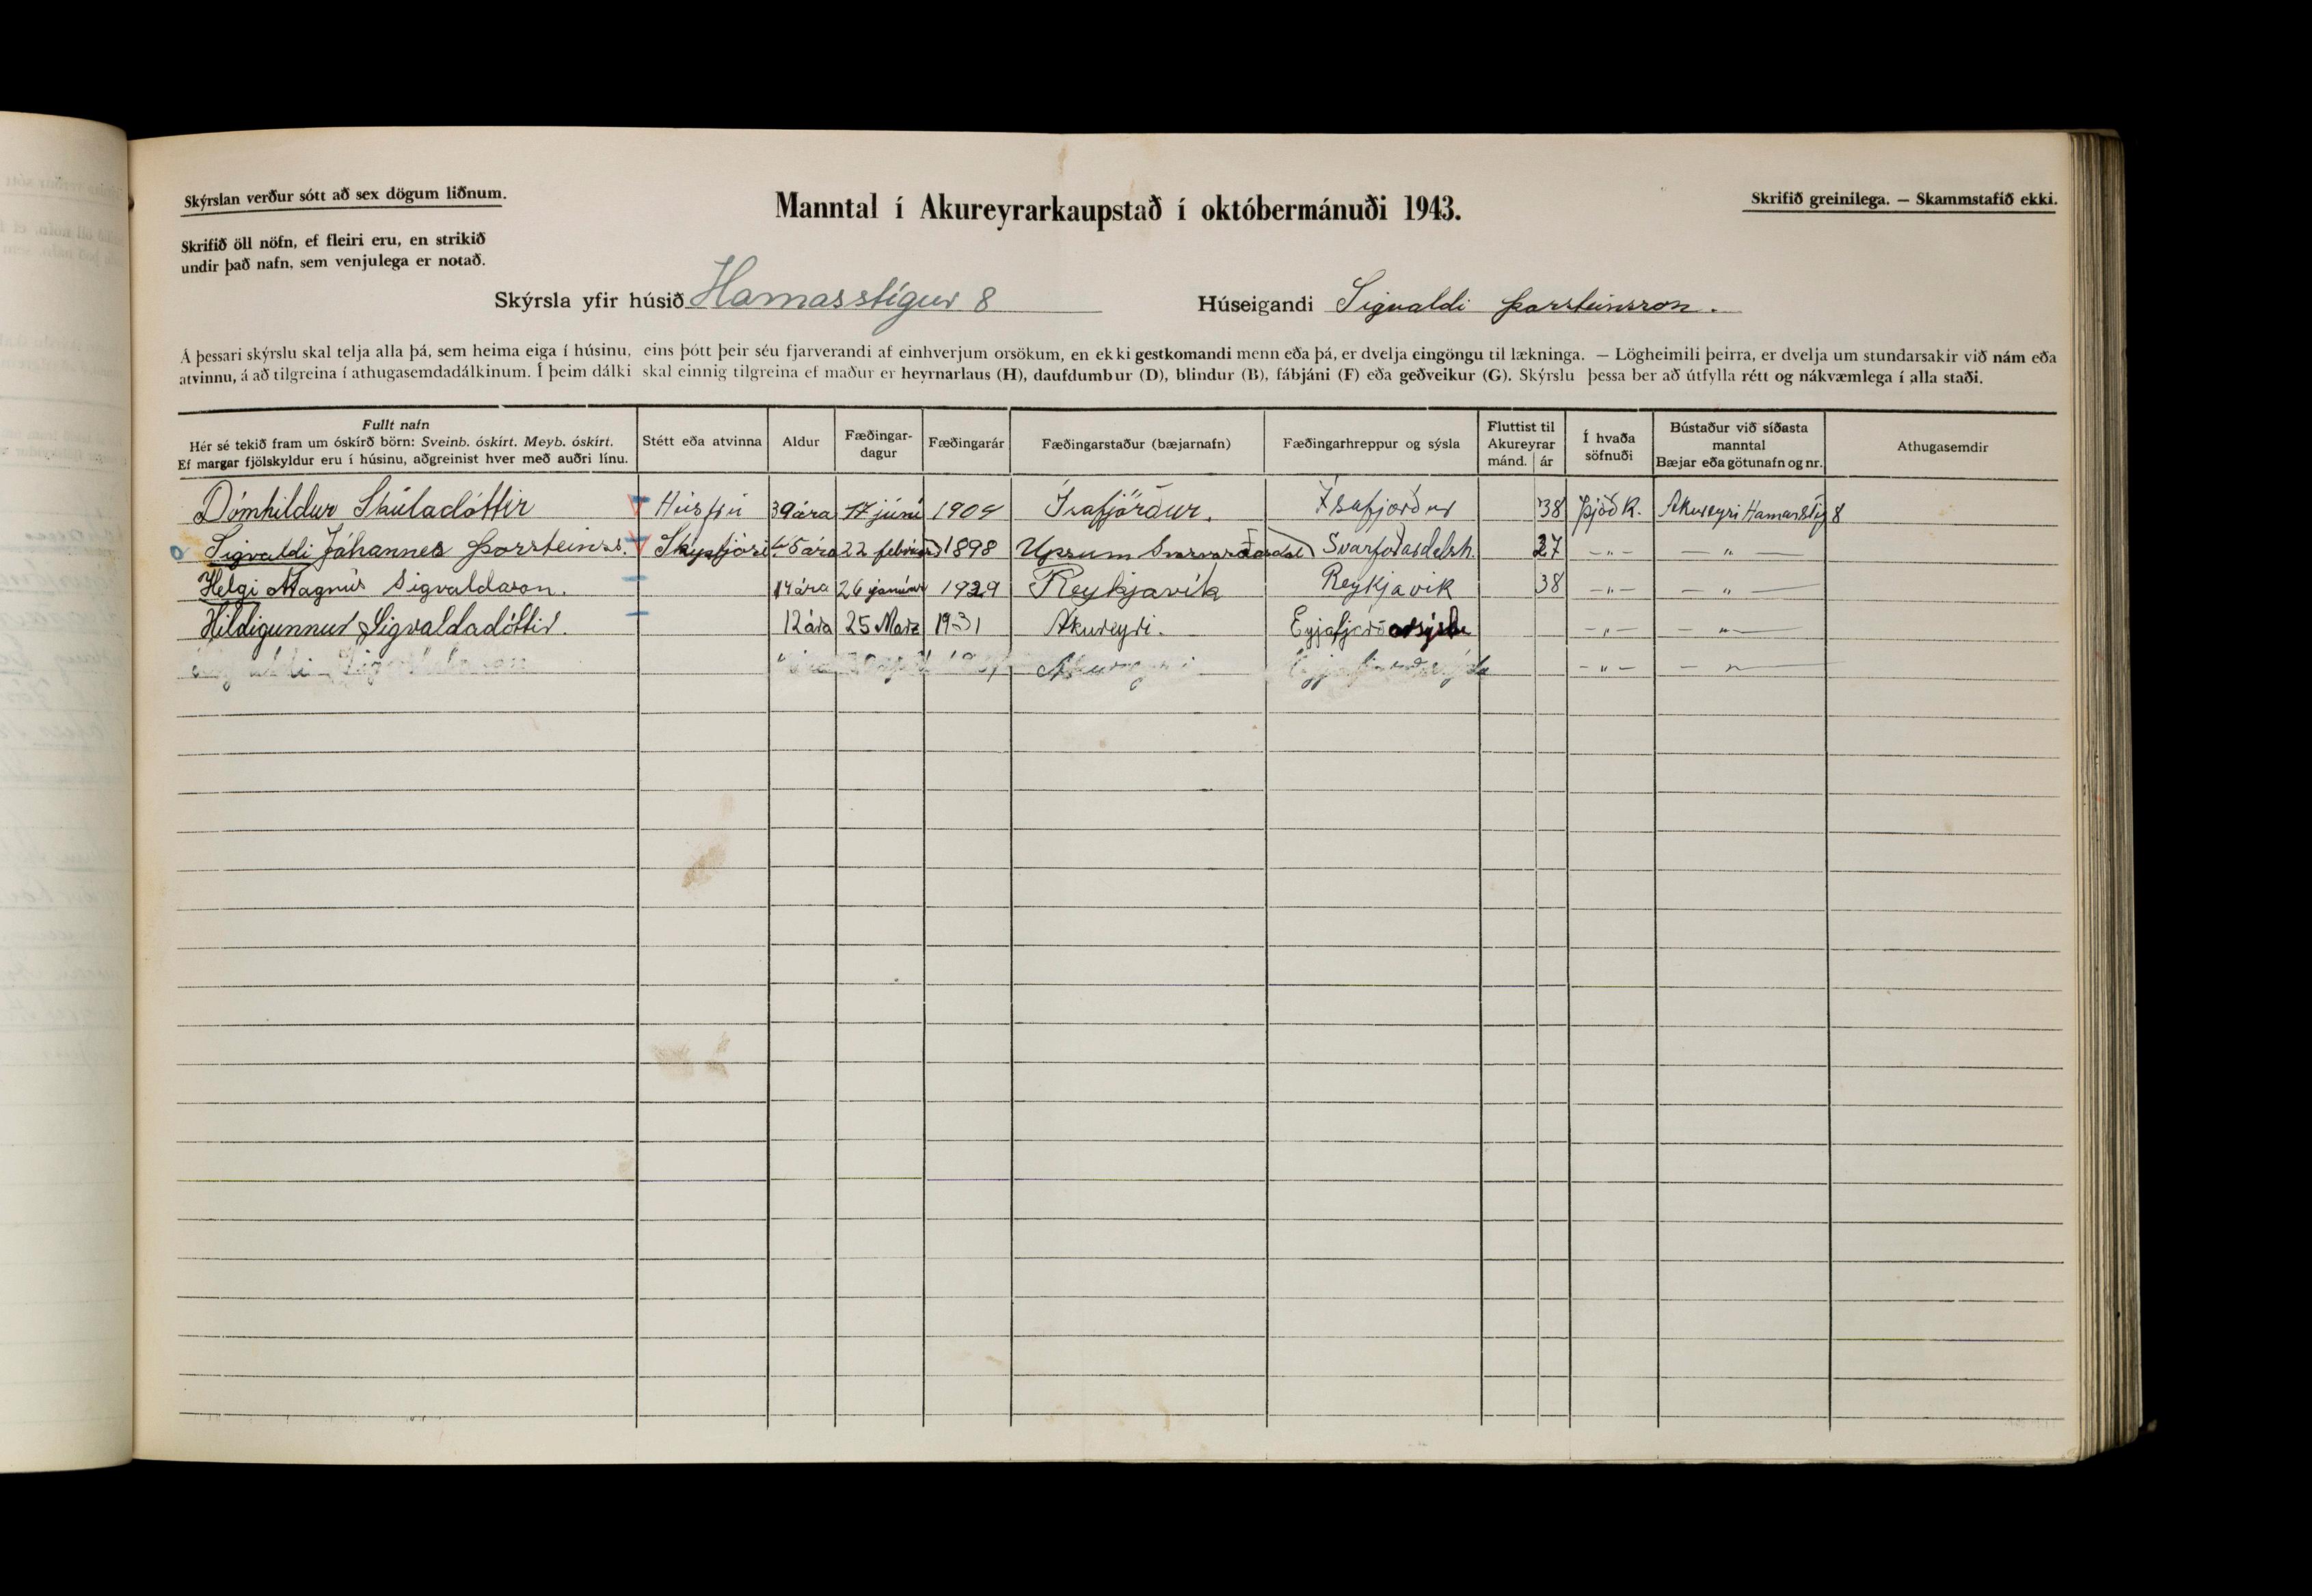 Skýrslan verður sótt að sex dögum liðnum.
Manntal í Akureyrarkaupstað í októbermánuði 1943.
Skrifið greinilega. — Skammstafið ekki.
Skrifið öll nöfn, ef fleiri eru, en strikið
undir það nafn, sem venjulega er notað.
Skýrsla yfir húsið Hamarsstígur 8 Húseigandi Sigvaldi Þorsteinsson.
Á þessari skýrslu skal telja alla þá, sem heima eiga í húsinu, eins þótt þeir séu fjarverandi af einhverjum orsökum, en ekki gestkomandi menn eða þá, er dvelja eingöngu til lækninga. — Lögheimili þeirra, er dvelja um stundarsakir við nám eða
atvinnu, á að tilgreina í athugasemdadálkinum. Í þeim dálki skal einnig tilgreina ef maður er heyrnarlaus (H), daufdumbur (D), blindur (B), fábjáni (F) eða geðveikur (G). Skýrslu þessa ber að útfylla rétt og nákvæmlega í alla staði.
Fullt nafn
Hér sé tekið fram um óskírð börn: Sveinb. óskírt. Meyb. óskírt.
Ef margar fjölskyldur eru í húsinu, aðgreinist hver með auðri línu.
Stétt eða atvinna
Aldur
Fæðingar-
dagur
Fæðingarár
Fæðingarstaður (bæjarnafn)
Fæðingarhreppur og sýsla
Fluttist til
Akureyrar
mánd. ár
Í hvaða
söfnuði
Bústaður við síðasta
manntal
Bæjar eða götunafn og nr.
Athugasemdir
Dómhildur Skúladóttir Húsfrú 39 ára 17 júní 1904 Ísafjörður. Ísafjörður 38 Þjóðk. Akureyri Hamarstíg 8
Sigvaldi Jóhannes Þorsteinss. 45 ára 22 febrúar 1898 Upsum Svarfaðardal Svarfaðardalsh. 27 -"- -"-
Helgi Magnús Sigvaldason. 14 ára 26 janúar 1929 Reykjavík Reykjavík 38 -"- -"-
Hildigunnur Sigvaldadóttir. 12 ára 25 Marz 1931 Akureyri. Eyjafjarðarsýsla -"- -"-
Akureyri Eyjafjarðarsýsla -"- -"-